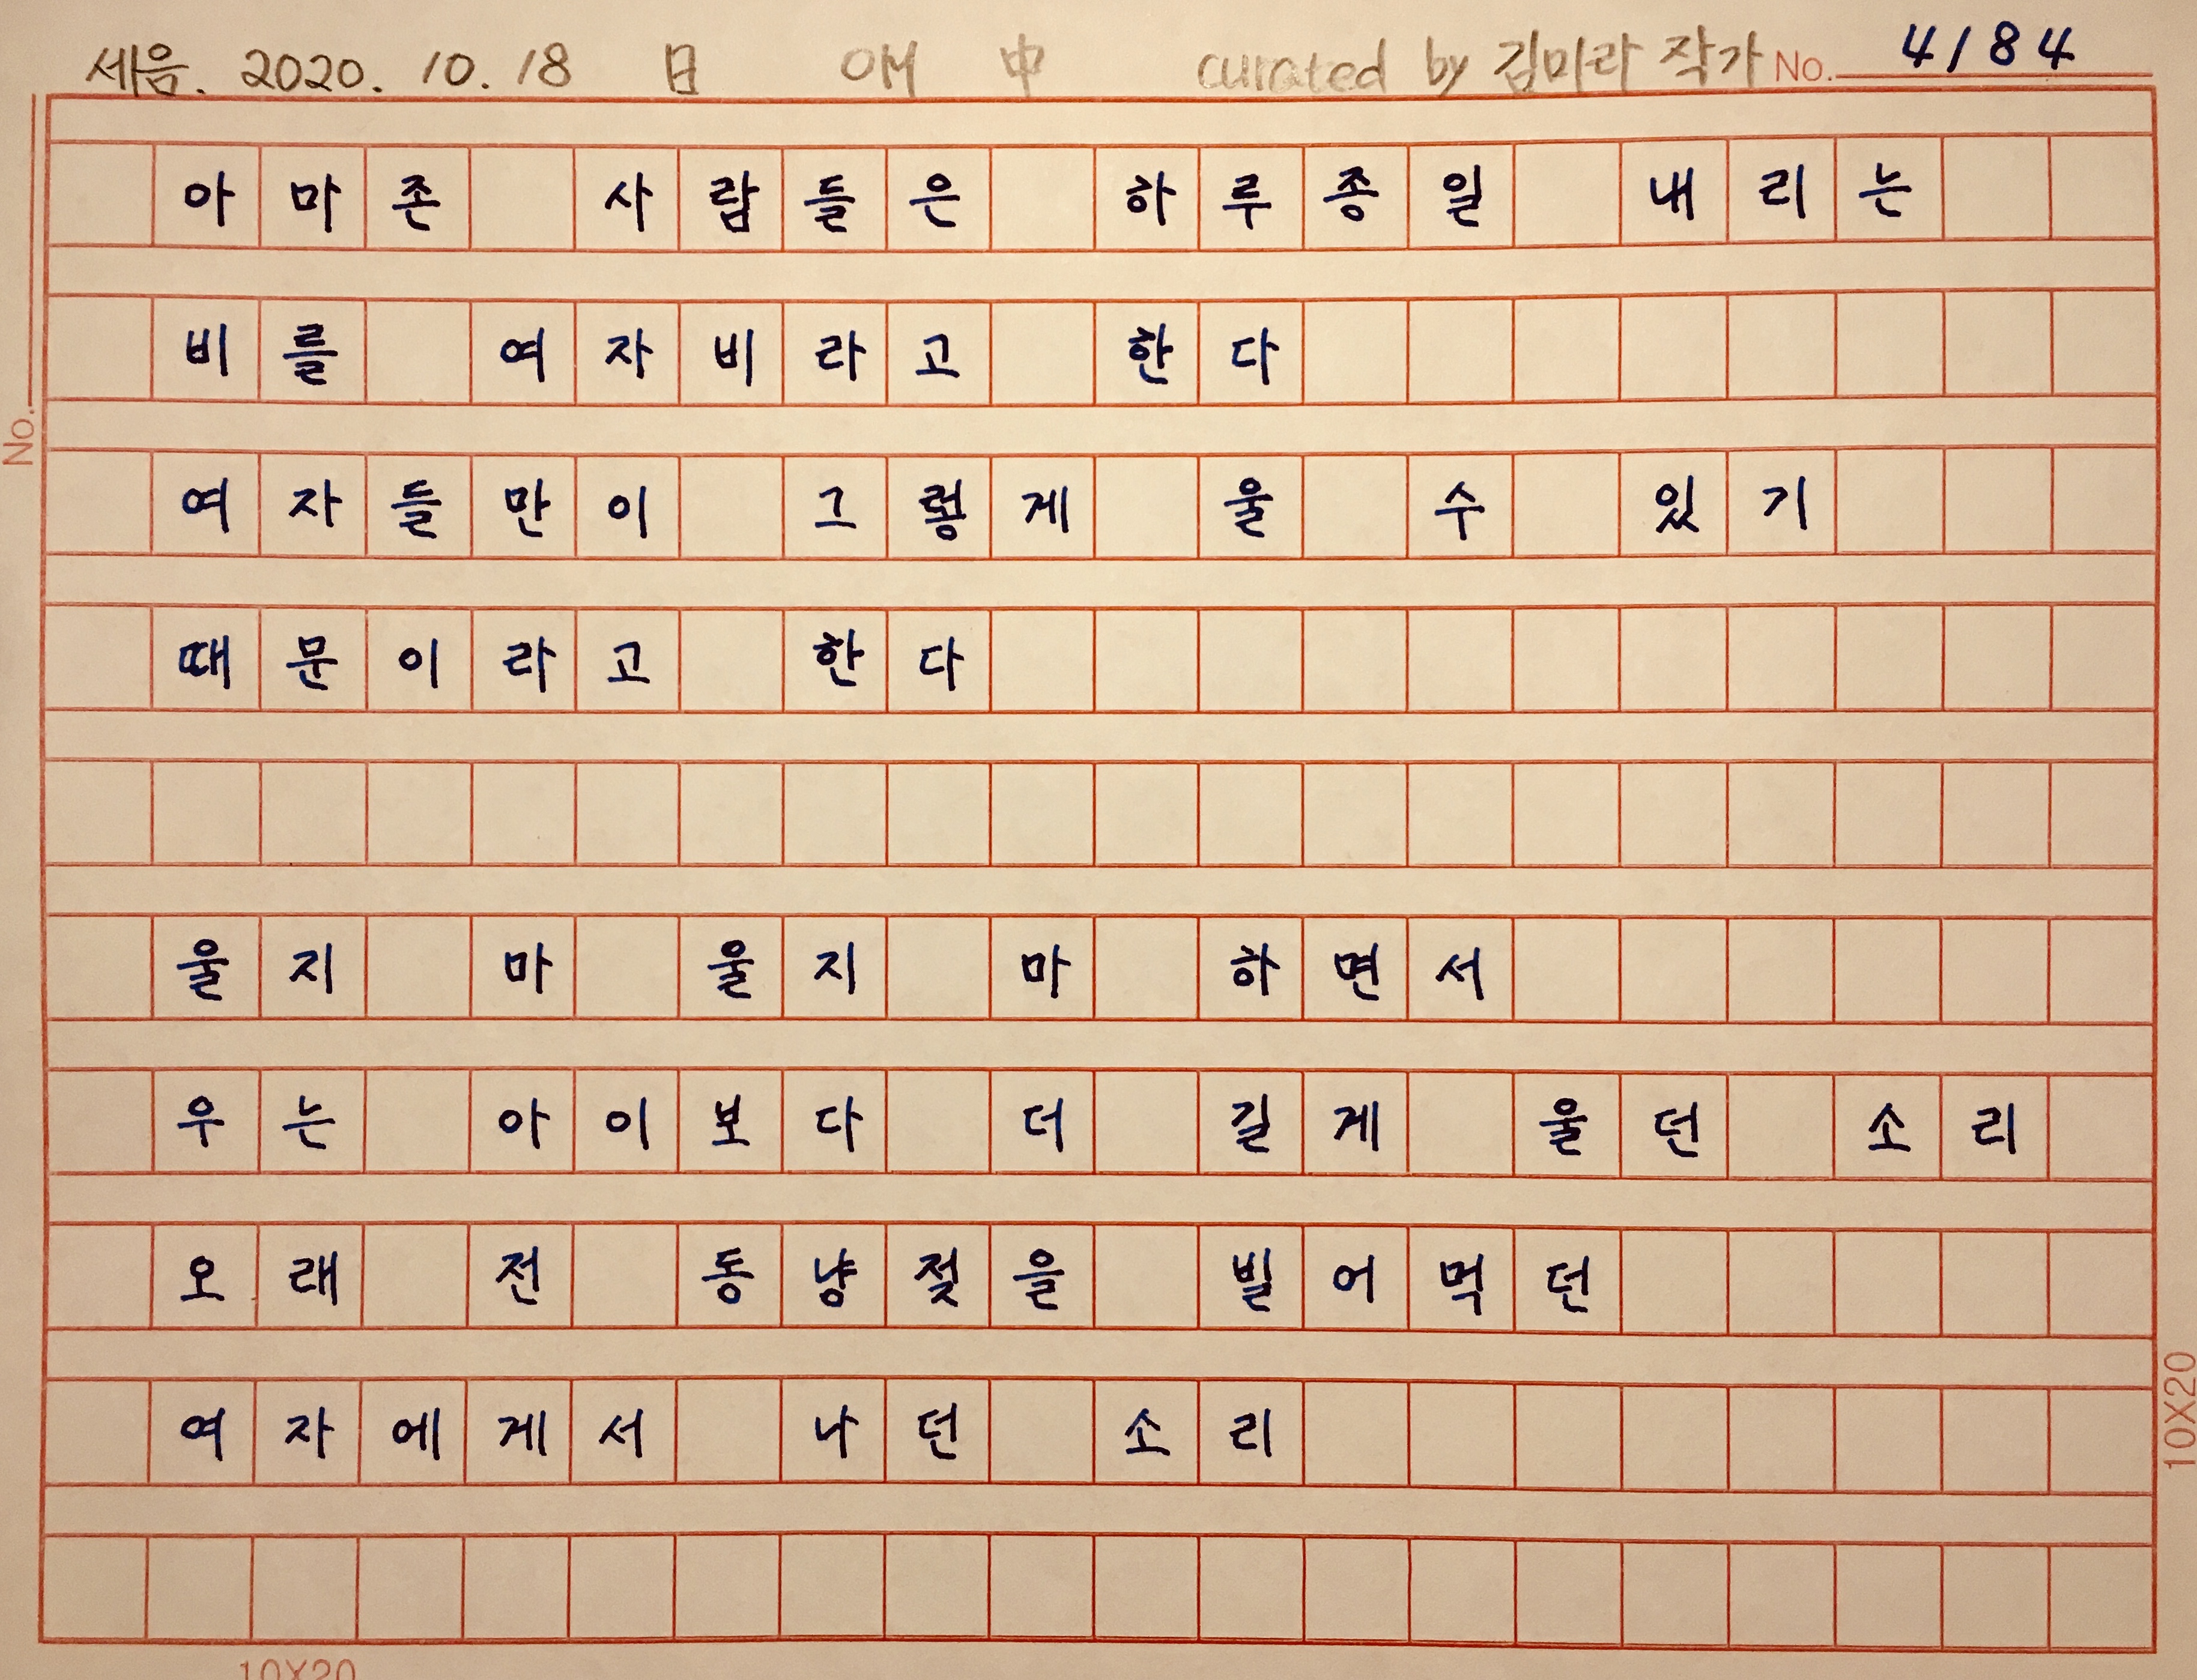 세음. 2020. 10. 18 日 애 中 curated by 김미라 작가 No. 4/84
아마존 사람들은 하루종일 내리는
비를 여자비라고 한다
No.
여자들만이 그렇게 울 수 있기
때문이라고 한다
울지 마 울지 마 하면서
우는 아이보다 더 길게 울던 소리
오래 전 동냥젖을 빌어먹던
여자에게서 나던 소리
10X20
10X20